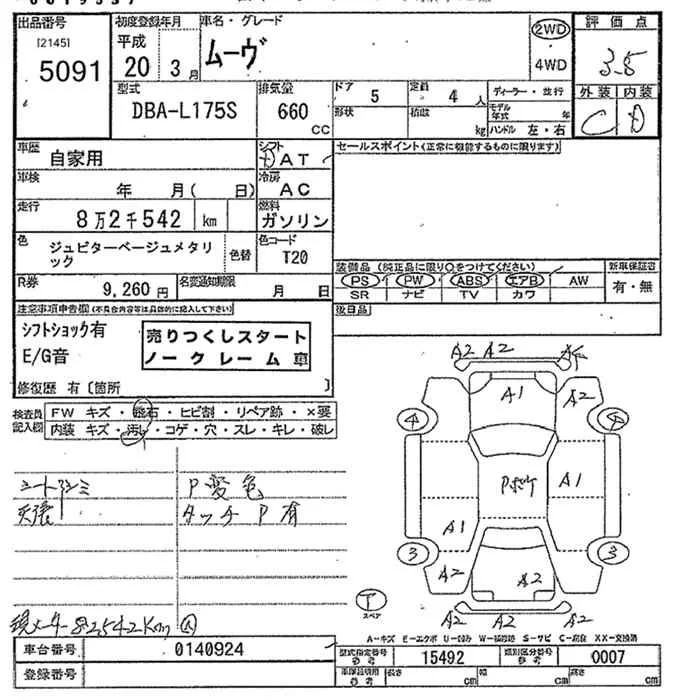 出品番号 初度登録年月 車名・グレード 評価点
[2145] 平成 ムーヴ 2WD 3.5
5091 20 3月 4WD
外装 内装
型式 排気量 ドア 5 定員 4人 ディーラー・並行
DBA-L175S 660 CC 形状 積載 kg モデル年式 年 C D
ハンドル 左・右
車歴 自家用 シフト AT セールスポイント(正常に機能するものに限ります)
車検 年 月( 日) 冷房 AC
走行 8万2千542 km 燃料 ガソリン
色 ジュピターベージュメタリック 色替 色コード T20
装備品 (純正品に限り○をつけてください) 新車保証書
R券 9,260円 名変通知期限 月 日 PS PW ABS エアB AW 有・無
SR ナビ TV カワ
注意事項申告欄(不具合内容等は具体的に記入して下さい) 後日品
シフトショック有 売りつくしスタート
E/G音 ノークレーム車
修復歴 有〔箇所 〕
検査員記入欄 FW キズ・飛石・ヒビ割・リペア跡・×要
内装 キズ・汚れ・コゲ・穴・スレ・キレ・破レ
A2 A2
A1 A2
4 4
シート P変色
天張 タッチP有
Pボケ A1
A1
3 3
A2 A2
T
スペア
A2 A2 A2
現メーター82542Km A
A-キズ E-エクボ U-凹み W-補修跡 S-サビ C-腐食 XX-交換済
車台番号 0140924 型式指定番号 参考 15492 類別区分番号 参考 0007
登録番号 車庫証明用 参考 長さ cm 幅 cm 高さ cm